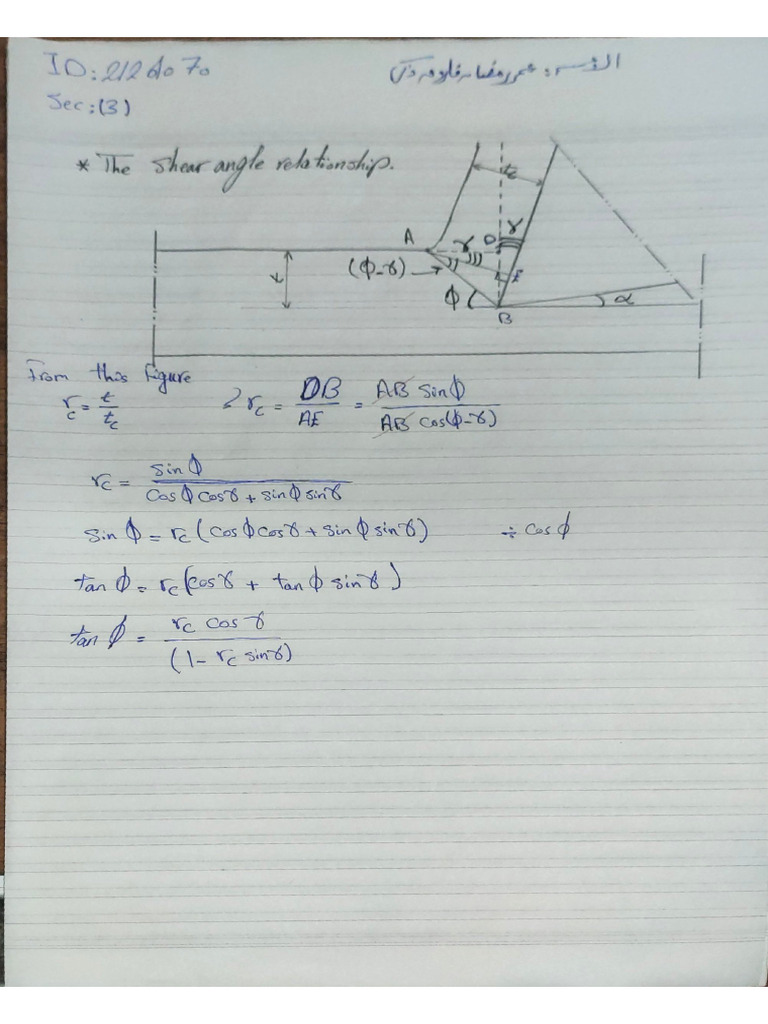 ID: 2126070
Sec:(3)
* The shear angle relationship.
tc
A
γ
D
γ
(φ-γ)
t
E
φ
B
α
From this figure
rc = t/tc
rc = DB/AE = AB sinφ / AB cos(φ-γ)
rc = sinφ / cosφcosγ + sinφsinγ
sinφ = rc(cosφcosγ + sinφsinγ) ÷ cosφ
tanφ = rc(cosγ + tanφ sinγ)
tanφ = rc cosγ / (1 - rc sinγ)